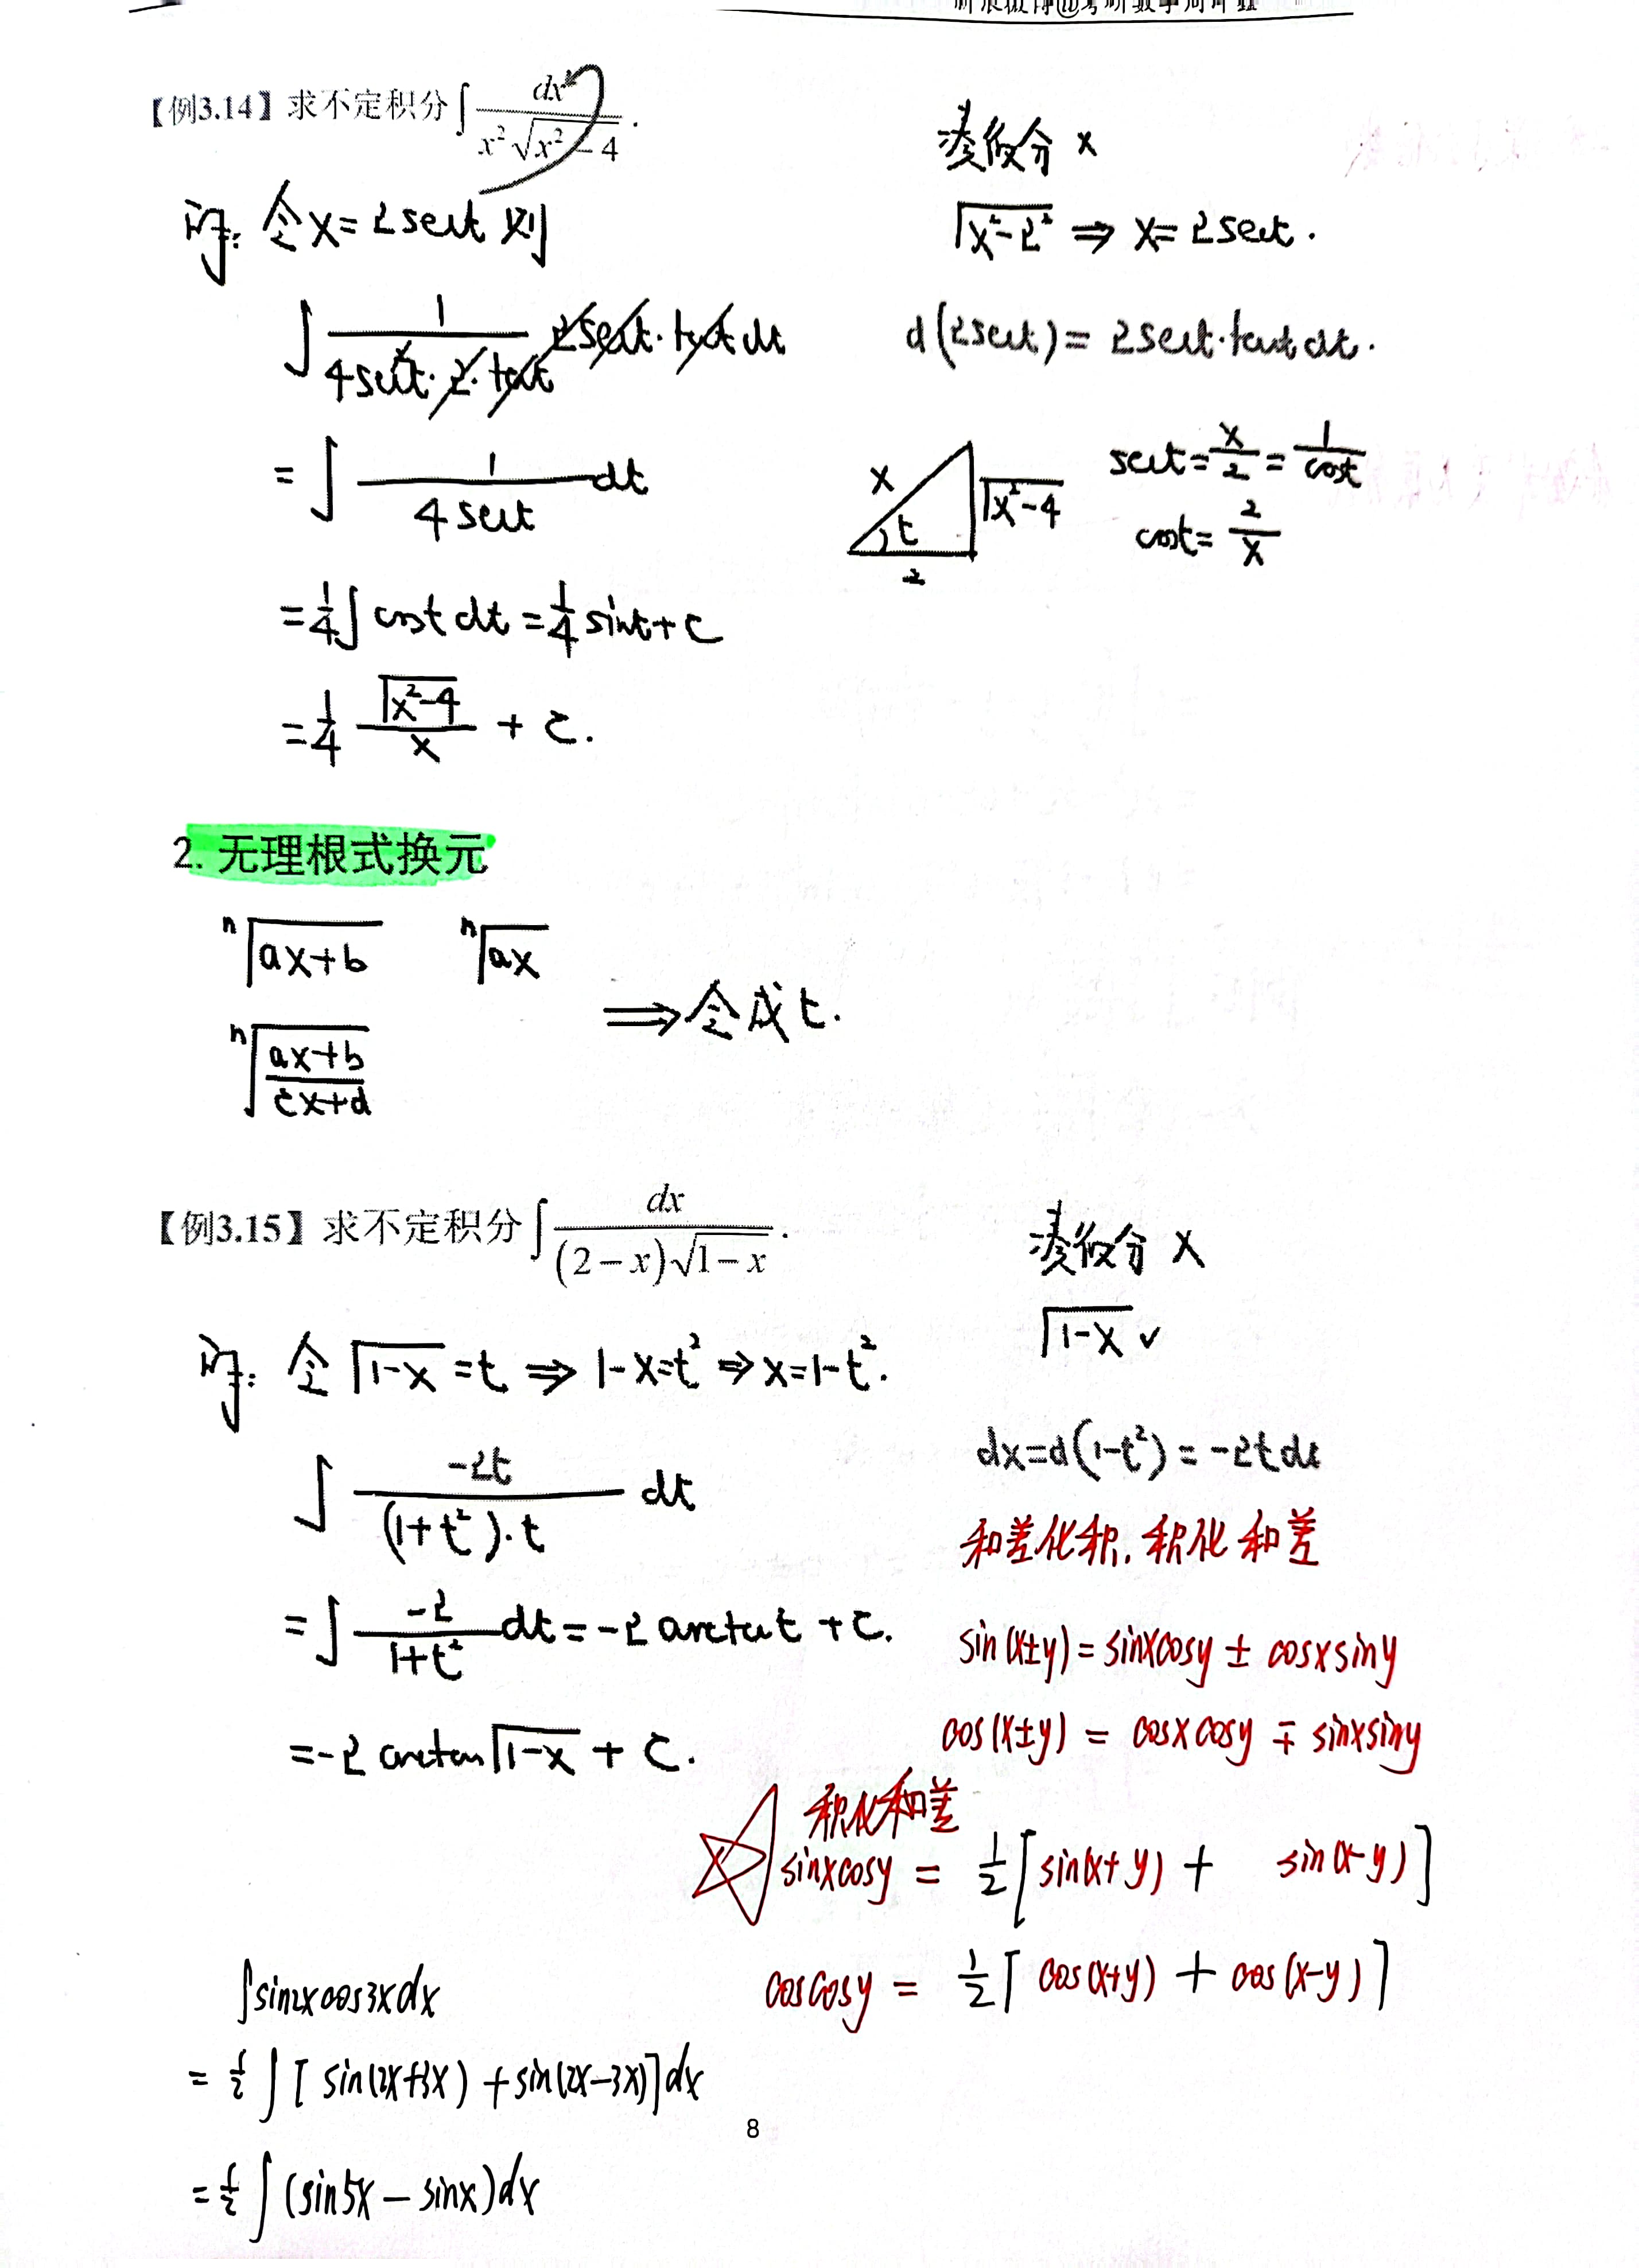 【例3.14】求不定积分∫ dx / (x²√(x²-4)) .
凑微分 x
解: 令x=2sect 则
√(x²-2²) ⇒ x=2sect.
∫ 1/(4sec²t·2·tant) 2sect·tant dt
d(2sect)=2sect·tant dt.
= ∫ 1/(4sect) dt
x t 2 √(x²-4)
sect=x/2=1/cost
cost=2/x
=1/4∫cost dt=1/4 sint+C
=1/4 √(x²-4)/x + C.
2. 无理根式换元
ⁿ√(ax+b) ⁿ√(ax)
⇒令成t.
ⁿ√((ax+b)/(cx+d))
【例3.15】求不定积分∫ dx / ((2-x)√(1-x)) .
凑微分 x
√(1-x) ✓
解: 令√(1-x)=t ⇒ 1-x=t² ⇒ x=1-t².
dx=d(1-t²)=-2tdt
∫ -2t/((1+t²)·t) dt
和差化积. 积化和差
=∫ -2/(1+t²) dt=-2arctant+C.
sin(x±y)=sinxcosy ± cosxsiny
cos(x±y) = cosxcosy ∓ sinxsiny
=-2arctan√(1-x) + C.
积化和差
sinxcosy = 1/2[sin(x+y) + sin(x-y)]
coscosy = 1/2[cos(x+y) + cos(x-y)]
∫sin2xcos3xdx
= 1/2 ∫[sin(2x+3x) + sin(2x-3x)]dx
8
= 1/2 ∫(sin5x - sinx)dx